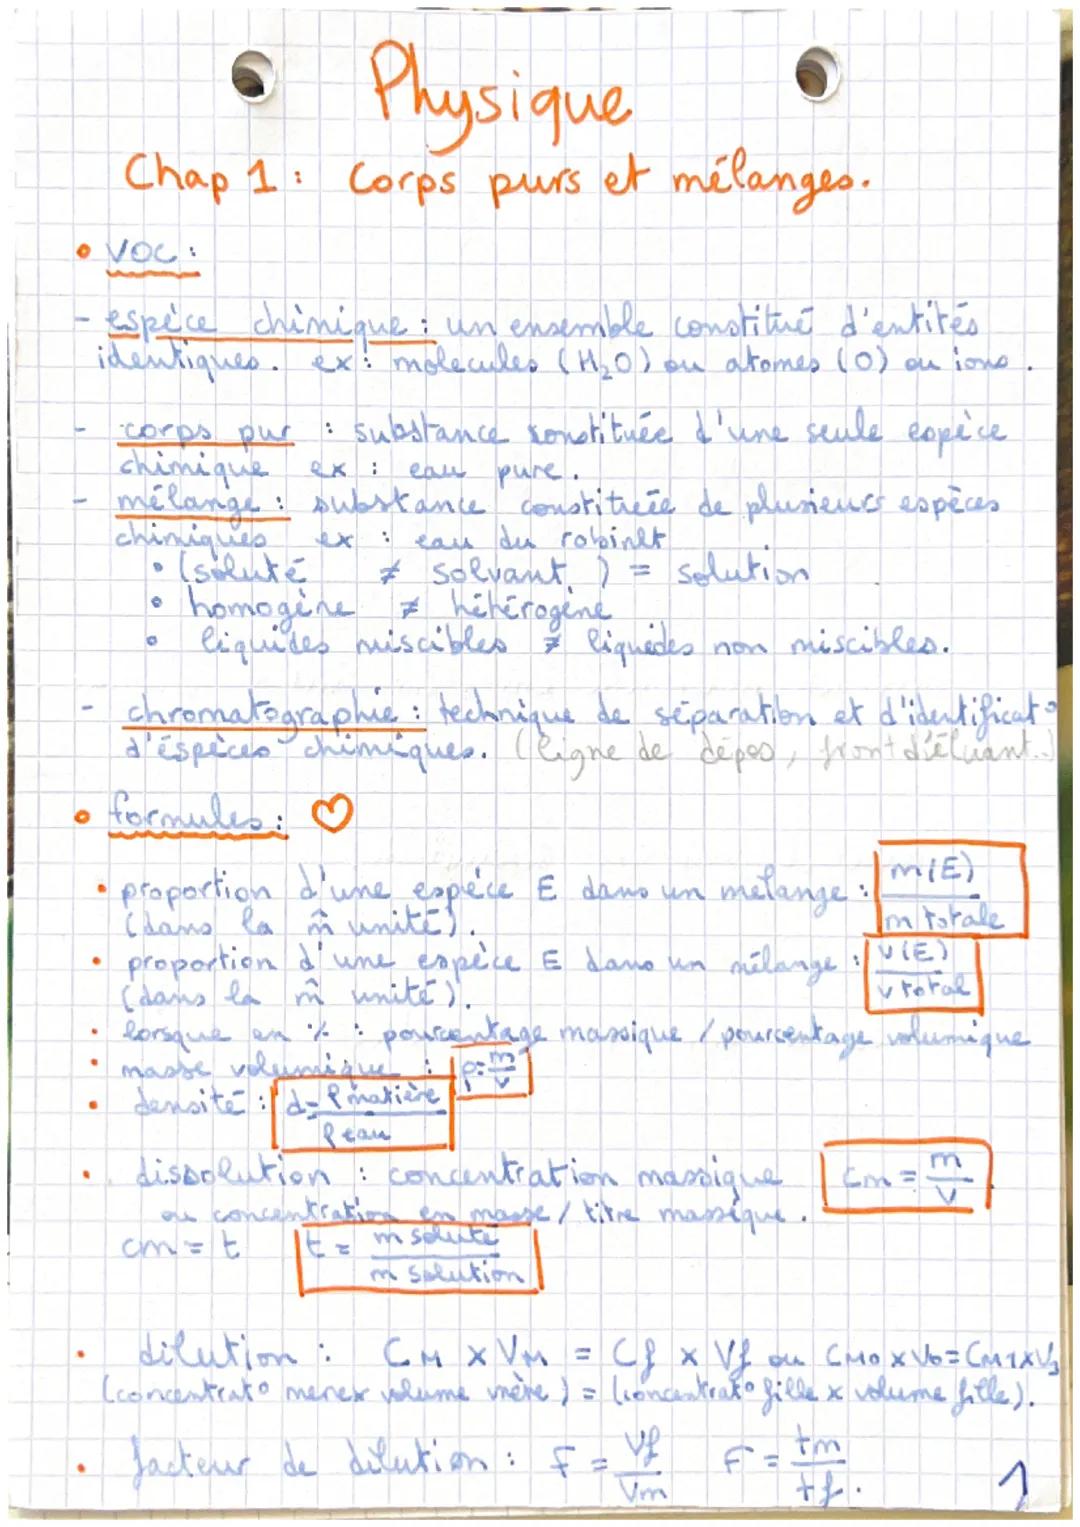 Physique
Chap 1 : Corps purs et mélanges.
• VOC :
- espèce chimique : un ensemble constitué d'entités
identiques. ex : molécules (H₂O) ou atomes (O) ou ions.
- corps pur : substance constituée d'une seule espèce
chimique ex : eau pure.
- mélange : substance constituée de plusieurs espèces
chimiques ex : eau du robinet
• (soluté ≠ solvant) = solution
• homogène ≠ hétérogène
• liquides miscibles ≠ liquides non miscibles.
- chromatographie : technique de séparation et d'identificat°
d'éspèces chimiques. (ligne de dépos, front d'éluant..)
• formules : ♡
• proportion d'une espèce E dans un mélange : m(E) / m totale
(dans la m̂ unité).
• proportion d'une espèce E dans un mélange : v(E) / v total
(dans la m̂ unité).
• lorsque en % : pourcentage massique / pourcentage volumique
• masse volumique : ρ = m/v
• densité : d = ρ matière / ρ eau
• dissolution : concentration massique Cm = m/V
ou concentration en masse / titre massique.
cm = t t = m soluté / m solution
• dilution : CM x VM = Cf x Vf ou CM0 x V0 = CM1 x V1
(concentrat° mère x volume mère) = (concentrat° fille x volume fille).
• facteur de dilution : F = Vf/Vm F = tm/tf.
1